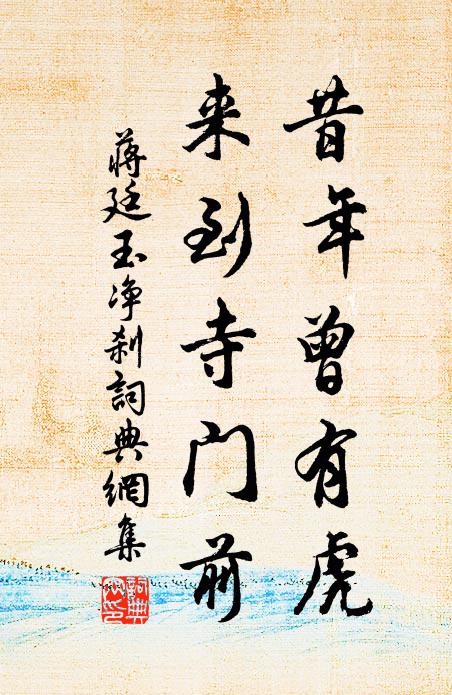 昔年曾有虎
来到寺门前
蒋廷玉净刹詞典網集